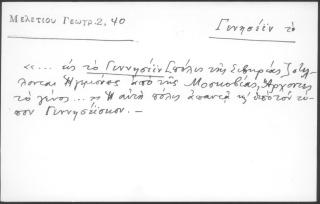 Μελετίου Γεωγρ. 2, 40
Γεννησέϊν τὸ
«... εἰς τὸ Γεννησέϊν [πόλις τῆς Σιβηρίας] στέλ-
λονται Ἡγεμόνες ἀπὸ τῆς Μοσκοβίας, Ἄρχοντες
τὸ γένος ...» Ἡ αὐτὴ πόλις ἀπαντᾷ κ' ὑπὸ τὸν τύ-
πον Γεννησέϊσκον. —